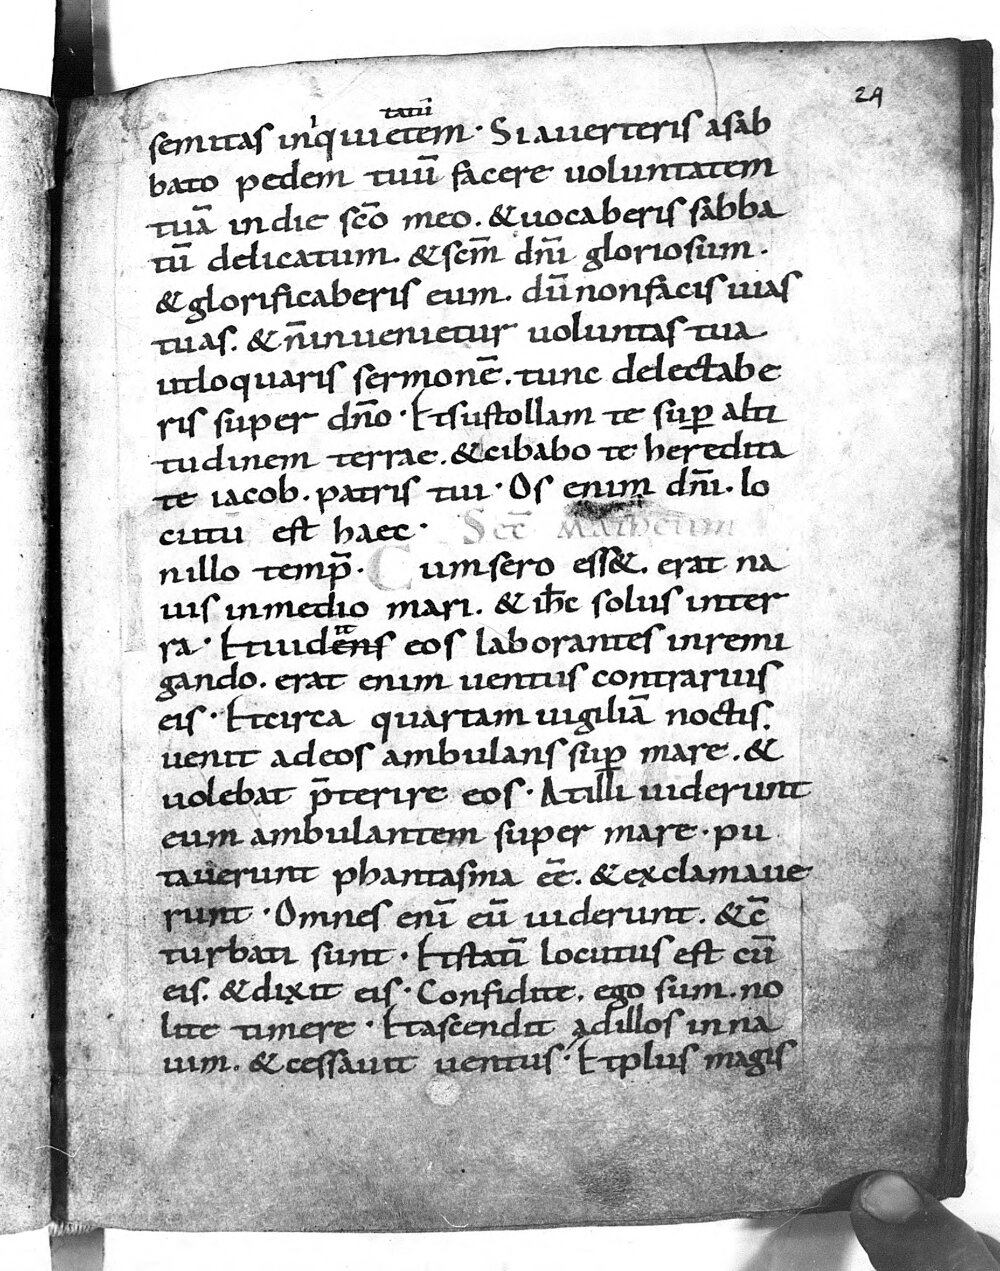 29
tatū
semitas inquietem · Si auerteris a sab
bato pedem tuū facere uoluntatem
tuā in die scō meo . & uocaberis sabba
tū delicatum . & scm̄ dn̄i gloriosum .
& glorificaberis eum . dū non facis uias
tuas . & n̄ inuenietur uoluntas tua
ut loquaris sermonē . tunc delectabe
ris super dn̄o · Et sustollam te suꝑ alti
tudinem terrae . & cibabo te heredita
te iacob . patris tui · Os enim dn̄i . lo
cutū est haec · Scd̄ Matheum
n illo temp̄ · Cum sero ess& . erat na
uis in medio mari . & ih̄c solus in ter
ra · Et uidēns eos laborantes in remi
gando . erat enim uentus contrarius
eis · Et circa quartam uigiliā noctis .
uenit ad eos ambulans suꝑ mare . &
uolebat p̄terire eos · At illi uiderunt
eum ambulantem super mare · pu
tauerunt phantasma eē . & exclamaue
runt · Omnes enī eū uiderunt . & c̄
turbati sunt · Et statī locutus est cū
eis . & dixit eis · Confidite . ego sum . no
lite timere · Et ascendit ad illos in na
uim . & cessauit uentus · Et plus magis